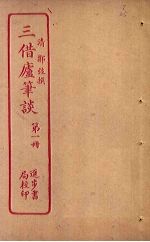 清 鄒弢撰
三借廬筆談
第一冊
進步書
局校印